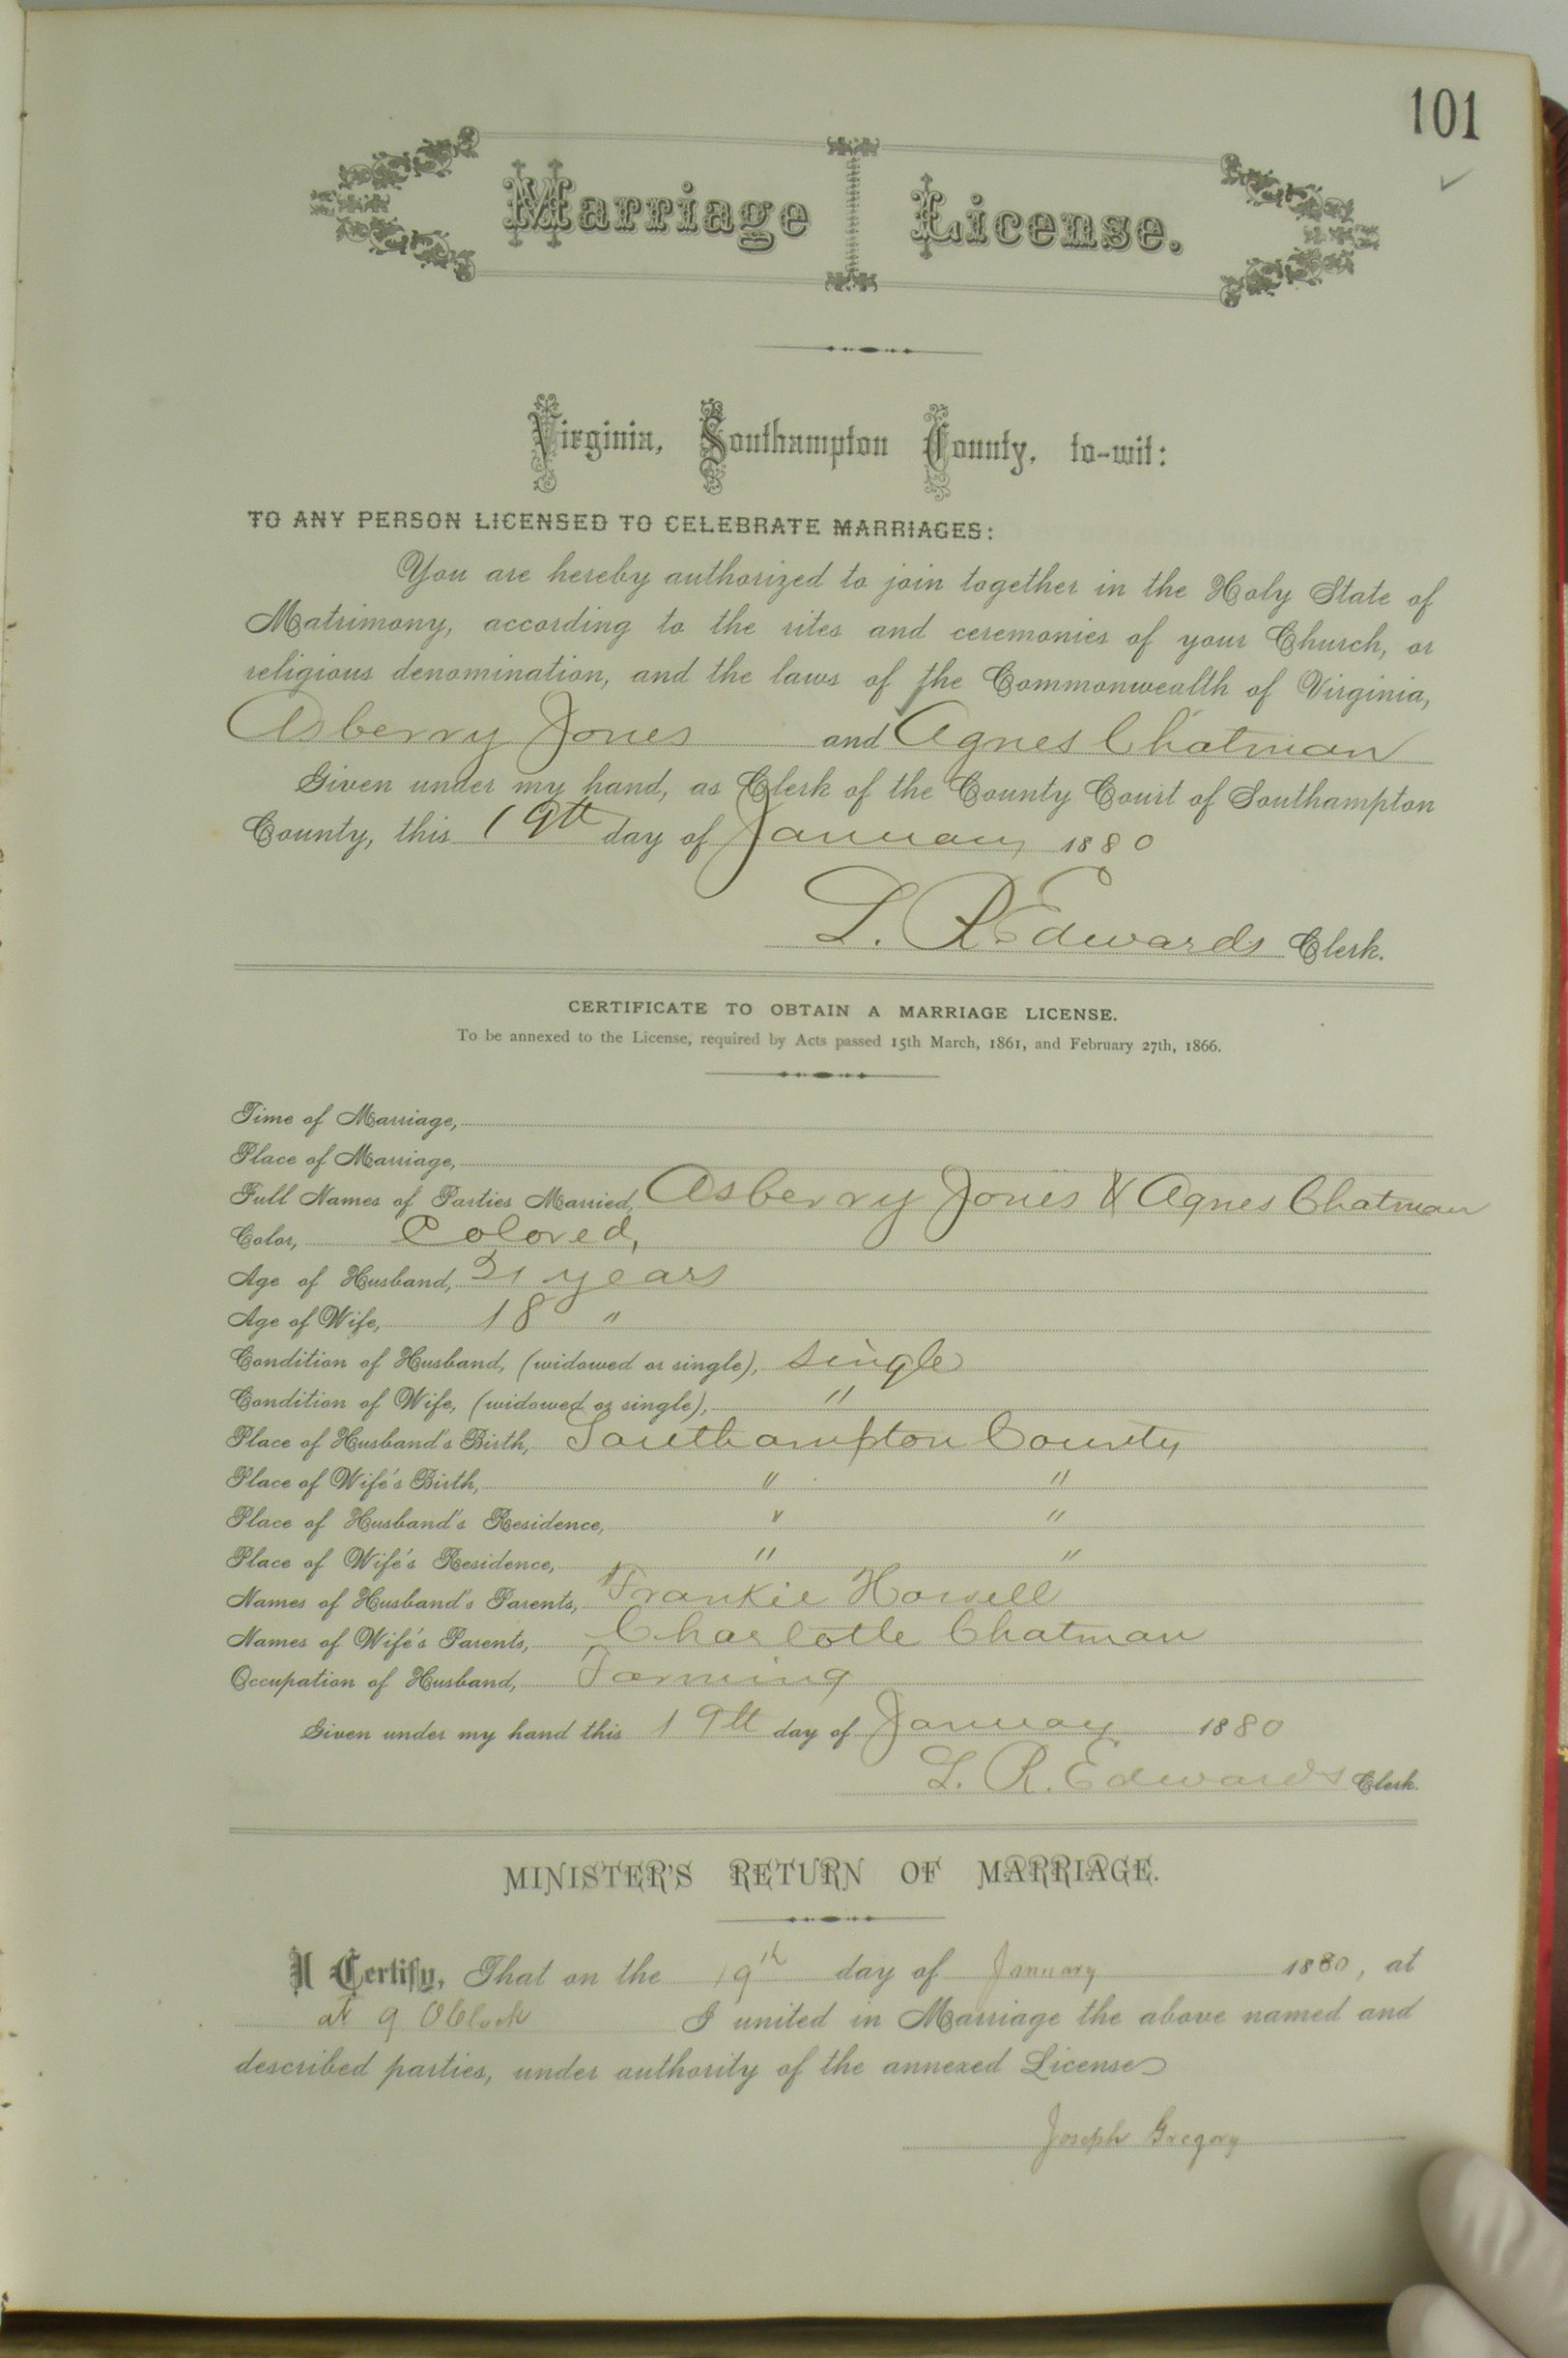 101
Marriage License.
Virginia, Southampton County, to-wit:
TO ANY PERSON LICENSED TO CELEBRATE MARRIAGES:
You are hereby authorized to join together in the Holy State of
Matrimony, according to the rites and ceremonies of your Church, or
religious denomination, and the laws of the Commonwealth of Virginia,
Asberry Jones and Agnes Chatman
Given under my hand, as Clerk of the County Court of Southampton
County, this 19th day of January 1880
L. R. Edwards Clerk.
CERTIFICATE TO OBTAIN A MARRIAGE LICENSE.
To be annexed to the License, required by Acts passed 15th March, 1861, and February 27th, 1866.
Time of Marriage,
Place of Marriage,
Full Names of Parties Married, Asberry Jones & Agnes Chatman
Color, Colored,
Age of Husband, 21 years
Age of Wife, 18 "
Condition of Husband, (widowed or single), single
Condition of Wife, (widowed or single), "
Place of Husband's Birth, Southampton County
Place of Wife's Birth, " "
Place of Husband's Residence, " "
Place of Wife's Residence, " "
Names of Husband's Parents, Frankie Howell
Names of Wife's Parents, Charlotte Chatman
Occupation of Husband, Farming
Given under my hand this 19th day of January 1880
L. R. Edwards Clerk.
MINISTER'S RETURN OF MARRIAGE.
I Certify, That on the 19th day of January 1880, at
at 9 OClock I united in Marriage the above named and
described parties, under authority of the annexed License
Joseph Gregory